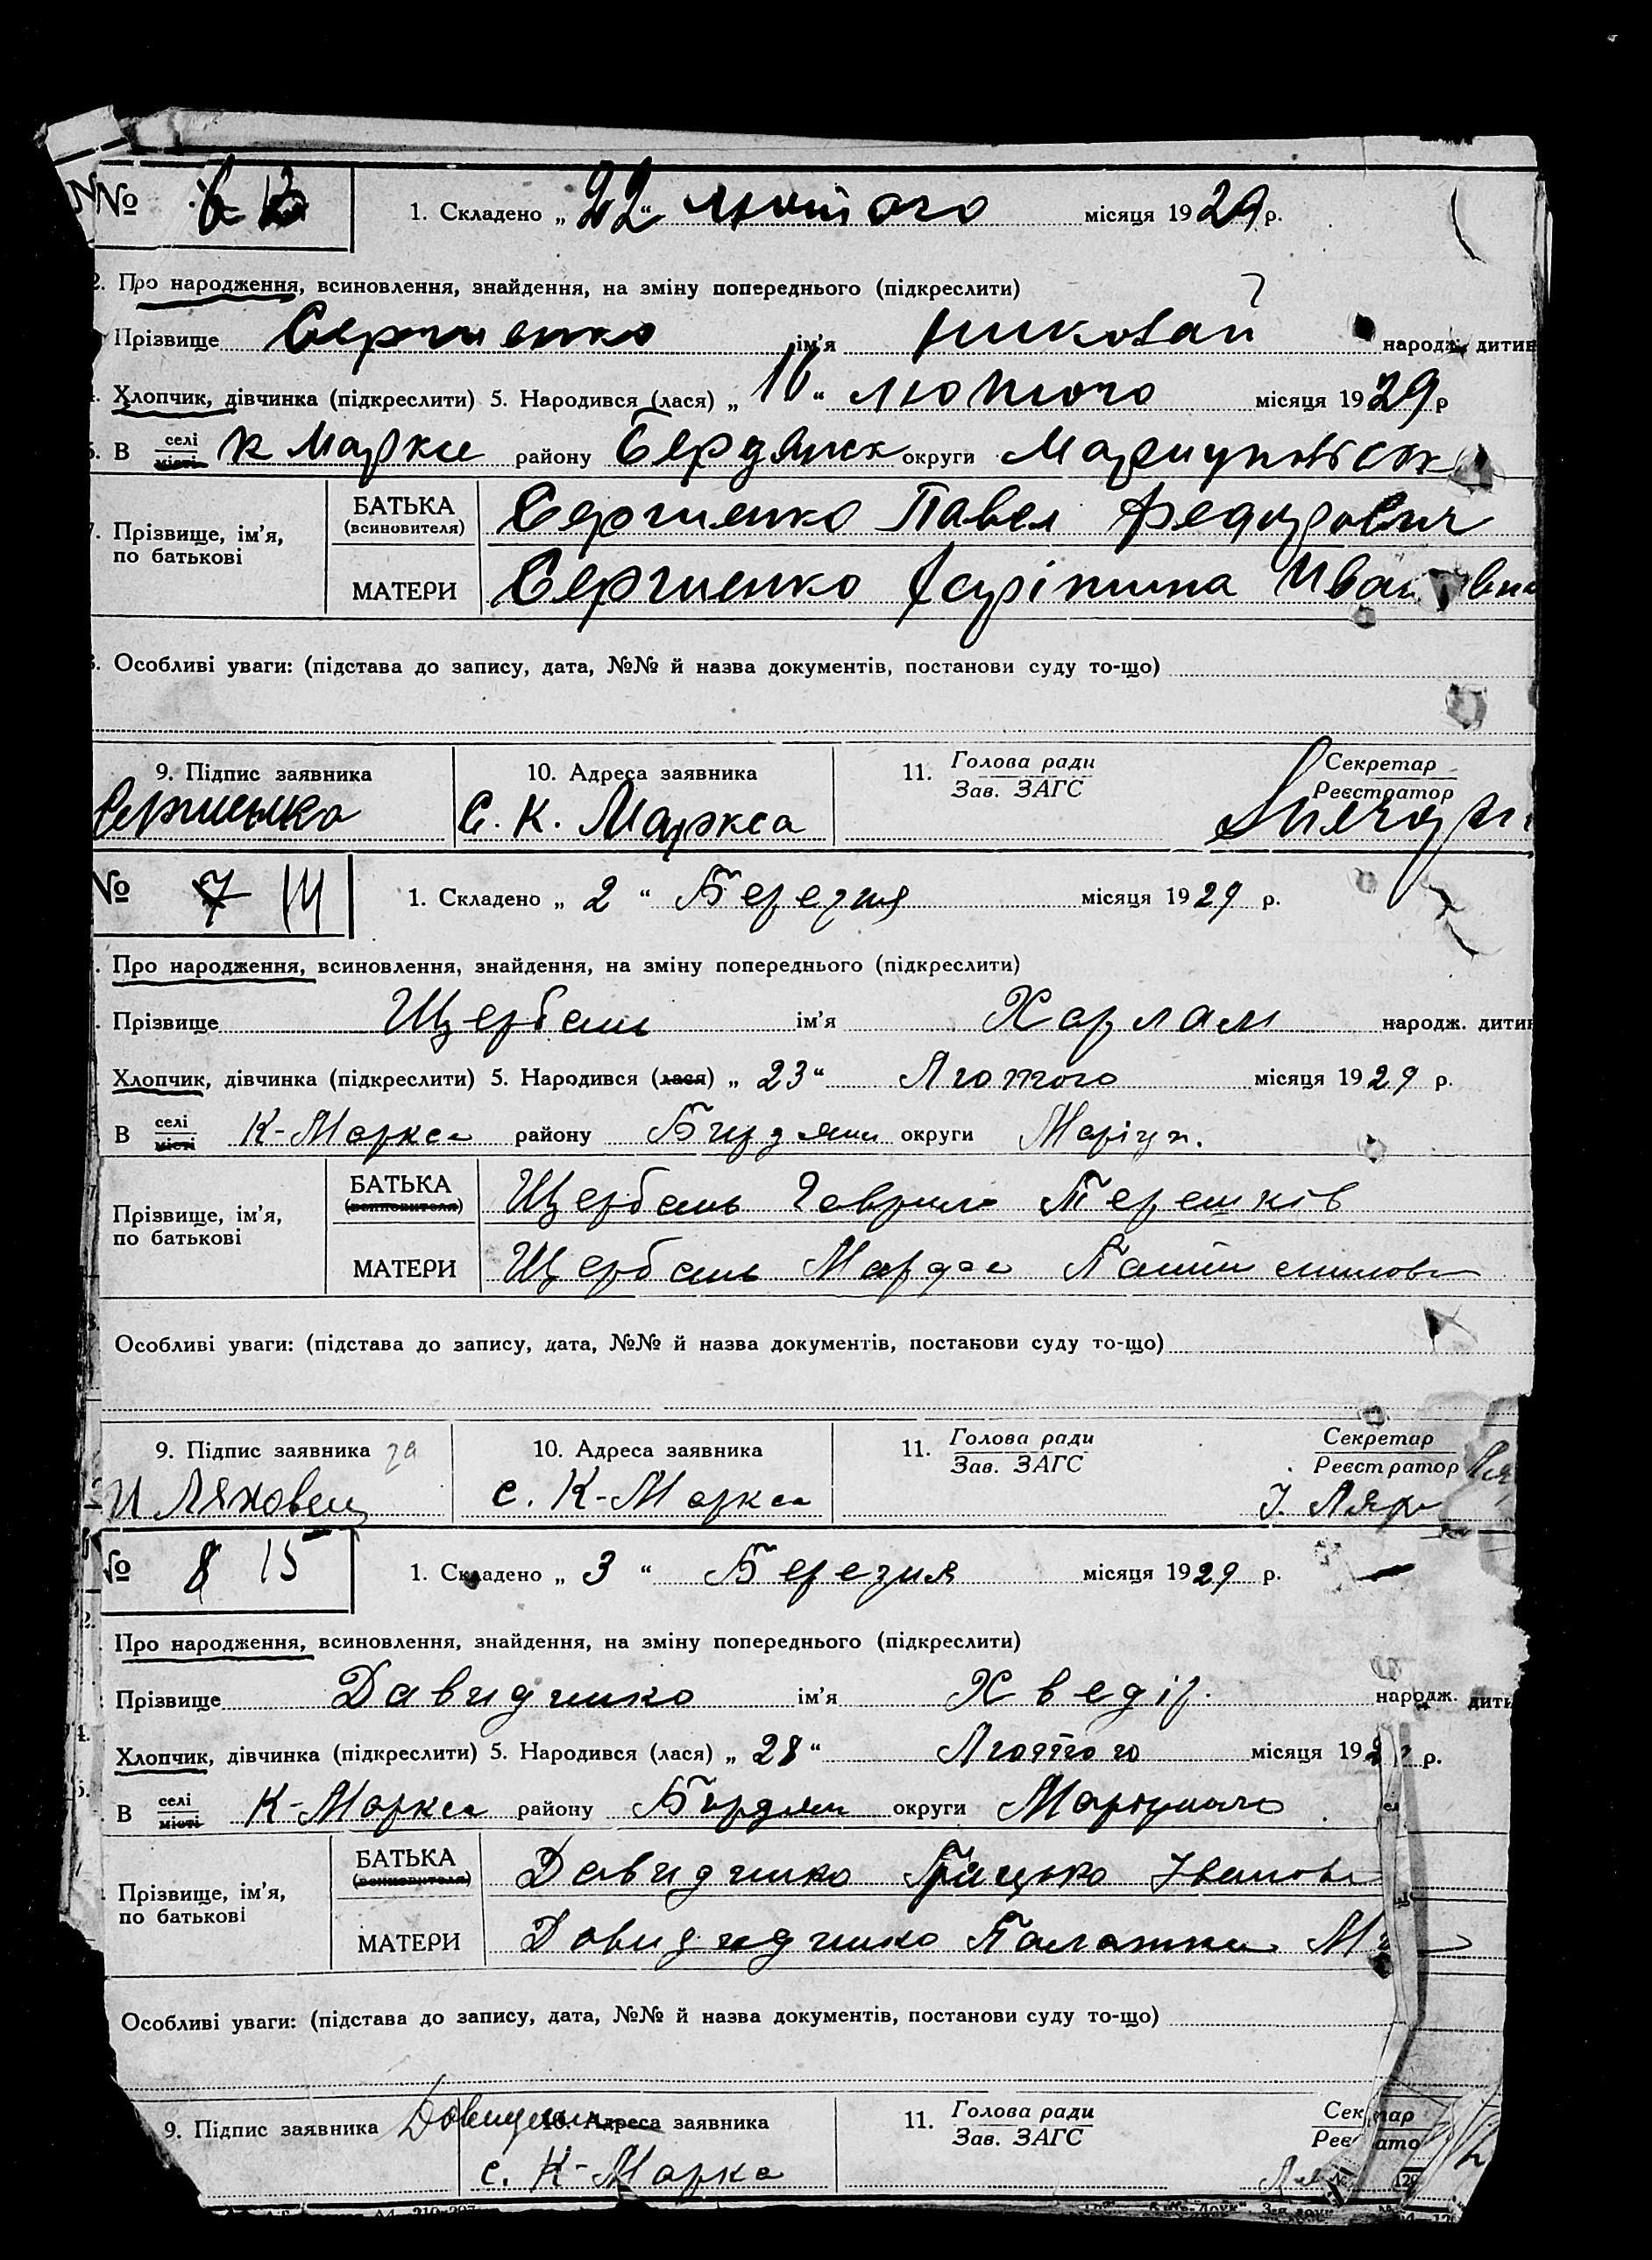 № 6 13 1. Складено „22“ лютого місяця 1929 р.
2. Про народження, всиновлення, знайдення, на зміну попереднього (підкреслити)
Прізвище Сергиенко ім'я Николай народж. дитин
Хлопчик, дівчинка (підкреслити) 5. Народився (лася) „16“ лютого місяця 1929 р
В селі місті К Маркса району Бердянск округи
7. Прізвище, ім'я, по батькові БАТЬКА (всиновителя) Сергиенко Павел Федорович
МАТЕРИ Сергиенко
Особливі уваги: (підстава до запису, дата, №№ й назва документів, постанови суду то-що)
9. Підпис заявника 10. Адреса заявника 11. Голова ради Зав. ЗАГС Секретар Реєстратор
Сергиенко С. К. Маркса
№ 7 14 1. Складено „2“ Березня місяця 1929 р.
Про народження, всиновлення, знайдення, на зміну попереднього (підкреслити)
Прізвище Щербань ім'я Харлам народж. дитин
Хлопчик, дівчинка (підкреслити) 5. Народився (лася) „23“ Лютого місяця 1929 р.
В селі місті К-Маркса району Бердян округи Маріуп.
Прізвище, ім'я, по батькові БАТЬКА (всиновителя) Щербань Гаврило Терешків
МАТЕРИ Щербань Марфа
Особливі уваги: (підстава до запису, дата, №№ й назва документів, постанови суду то-що)
9. Підпис заявника за 10. Адреса заявника 11. Голова ради Зав. ЗАГС Секретар Реєстратор
И Ляховец с. К-Маркса І.
№ 8 15 1. Складено „3“ Березня місяця 1929 р.
Про народження, всиновлення, знайдення, на зміну попереднього (підкреслити)
Прізвище Давидинко ім'я Хведір. народж. дити
Хлопчик, дівчинка (підкреслити) 5. Народився (лася) „28“ Лютого місяця 192 р.
В селі місті К-Маркса району Бердян округи
Прізвище, ім'я, по батькові БАТЬКА (всиновителя) Давидинко Грицько Іванов
МАТЕРИ Палажка М
Особливі уваги: (підстава до запису, дата, №№ й назва документів, постанови суду то-що)
9. Підпис заявника 10. Адреса заявника 11. Голова ради Зав. ЗАГС
с. К-Маркса